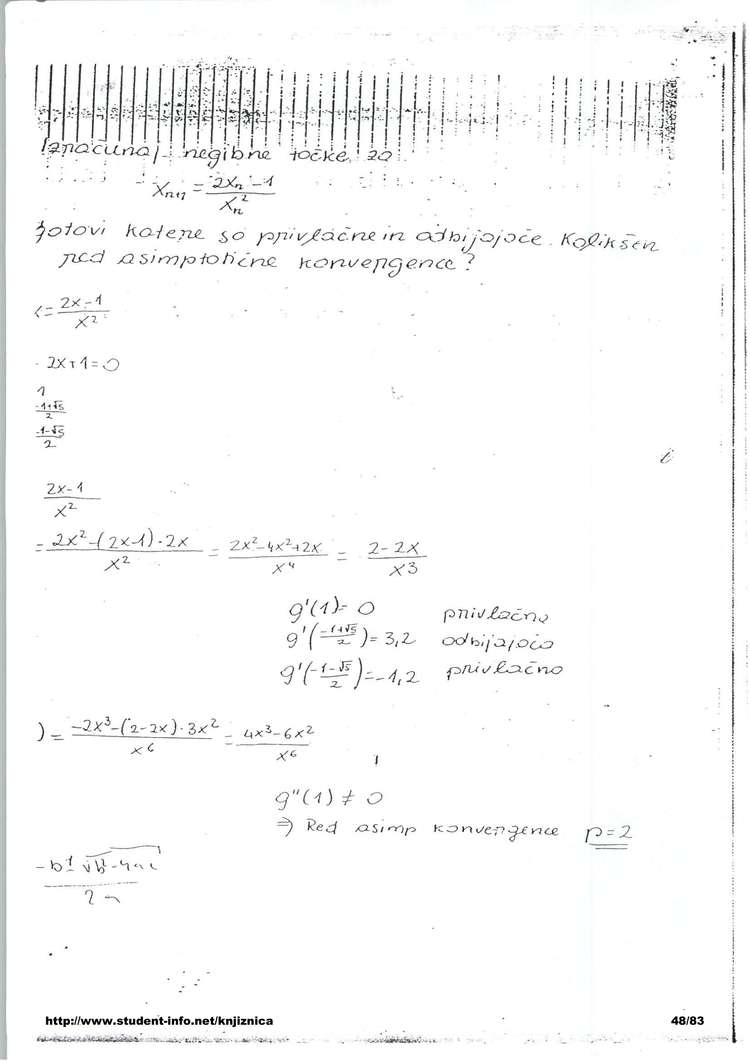 Izračunaj negibne točke za
Xn+1 = 2Xn - 1 / Xn²
katere so privlačne in odbijajoče. Kolikšen
red asimptotične konvergence?
= 2x-1 / x²
- 2x+1=0
1
-1+√5 / 2
-1-√5 / 2
2x-1 / x²
= 2x²-(2x-1)·2x / x² = 2x²-4x²+2x / x⁴ = 2-2x / x3
g'(1)= 0 privlačno
g'(-1+√5 / 2)= 3,2 odbijajočo
g'(-1-√5 / 2)=-1,2 privlačno
)= -2x³-(2-2x)·3x² / x6 = 4x³-6x² / x6
g"(1) ≠ 0
⇒ Red asimp konvergence p=2
-b± √b²-4ac / 2a
http://www.student-info.net/knjiznica 48/83